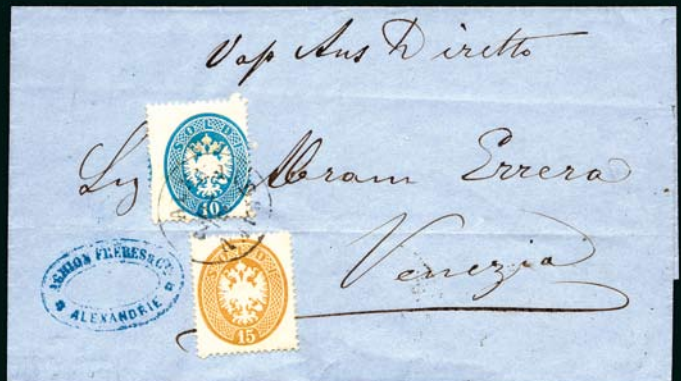 Vap Aus Diretto
Sig Abram Errera
Venezia
SOLDI
10
SOLDI
15
FRERES & C.
ALEXANDRIE